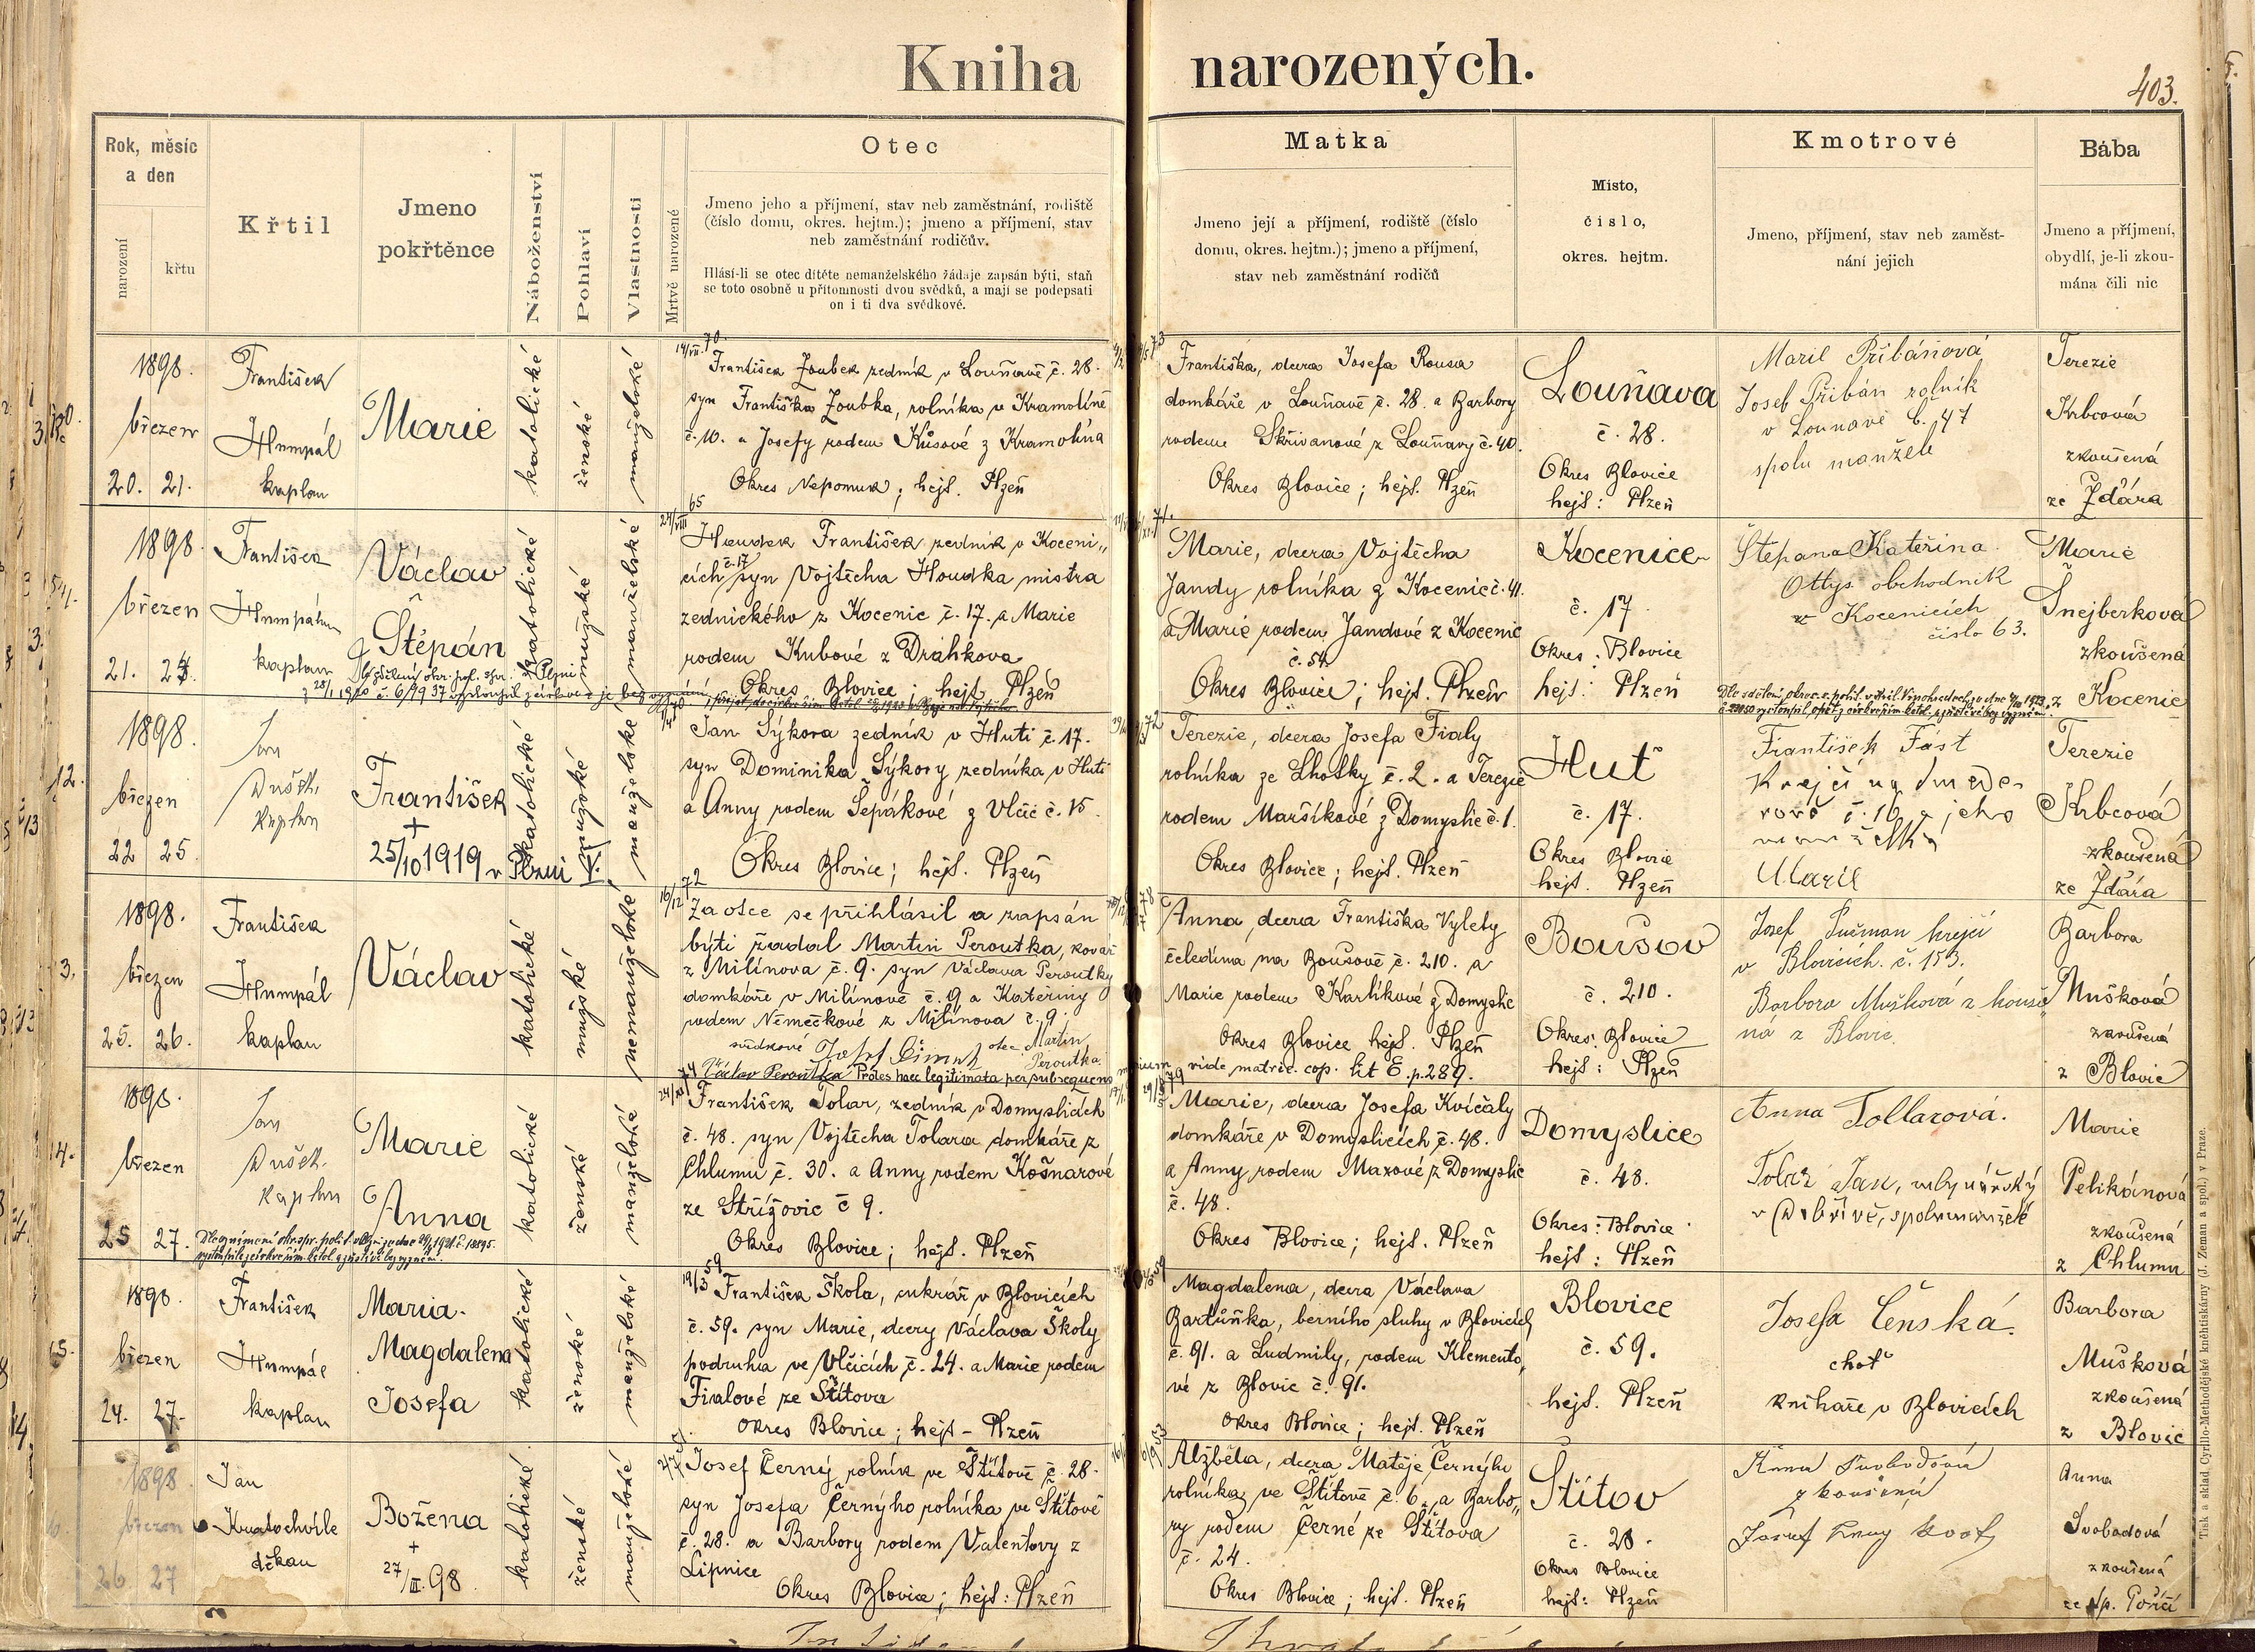 Kniha narozených.
403.
Rok, měsíc
a den
narození
křtu
Křtil
Jmeno
pokřtěnce
Náboženství
Pohlaví
Vlastnosti
Mrtvě narozené
Otec
Jmeno jeho a příjmení, stav neb zaměstnání, rodiště
(číslo domu, okres. hejtm.); jmeno a příjmení, stav
neb zaměstnání rodičův.
Hlásí-li se otec dítěte nemanželského žádaje zapsán býti, staň
se toto osobně u přítomnosti dvou svědků, a mají se podepsati
on i ti dva svědkové.
Matka
Jmeno její a příjmení, rodiště (číslo
domu, okres. hejtm.); jmeno a příjmení,
stav neb zaměstnání rodičů
Místo,
číslo,
okres. hejtm.
Kmotrové
Jmeno, příjmení, stav neb zaměst-
nání jejich
Bába
Jmeno a příjmení,
obydlí, je-li zkou-
mána čili nic
1898.
březen
20. 21.
František
Humpál
kaplan
Marie
katolické
ženské
manželské
14/VII. 70.
František Zoubek zedník v Louňavě č. 28.
syn Františka Zoubka, rolníka v Kramolíně
č. 10. a Josefy rodem Kůsové z Kramolína
Okres Nepomuk; hejt. Plzeň
Františka, dcera Josefa Rousa
domkáře v Louňavě č. 28. a Barbory
rodem Skřivanové z Louňavy č. 40.
Okres Blovice; hejt. Plzeň
Louňava
č. 28.
Okres Blovice
hejt: Plzeň
Marie Přibáňová
Josef Přibán rolník
v Lounavě č. 47
spolu manželé
Terezie
Krbcová
zkoušená
ze Zďára
1898.
březen
21. 24.
František
Humpál
kaplan
Václav
Štěpán
katolické
mužské
manželské
24/VIII 65
Houdek František zedník v Koceni„
cích č. 17 syn Vojtěcha Houdka mistra
zednického z Kocenic č. 17. a Marie
rodem Kubové z Drahkova
Okres Blovice; hejt. Plzeň
Marie, dcera Vojtěcha
Jandy rolníka z Kocenic č. 41.
a Marie rodem Jandové z Kocenic
č. 54.
Okres Blovice; hejt. Plzeň
Kocenice
č. 17.
Okres: Blovice
hejt: Plzeň
Štěpana Kateřina
Ottys obchodník
v Kocenicích
číslo 63.
Marie
Šnejberková
zkoušená
z Kocenic
1898.
březen
22 25.
Jan
Dušek,
kaplan
František
+
25/10 1919 v Plzni V.
katolické
mužské
manželské
Jan Sýkora zedník v Huti č. 17.
syn Dominika Sýkory zedníka v Huti
a Anny rodem Šepákové z Vlčic č. 15.
Okres Blovice; hejt. Plzeň
Terezie, dcera Josefa Fialy
rolníka ze Lhotky č. 2. a Terezie
rodem Maršíkové z Domyslic č. 1.
Okres Blovice; hejt. Plzeň
Huť
č. 17.
Okres Blovice
hejt. Plzeň
František Fást
č. 10 a jeho
manželka
Marie
Terezie
Krbcová
zkoušená
ze Zďára
1898.
březen
25. 26.
František
Humpál
kaplan
Václav
katolické
mužské
nemanželské
16/12 72
Za otce se přihlásil a zapsán
býti žádal Martin Peroutka, kovář
z Milínova č. 9. syn Václava Peroutky
domkáře v Milínově č. 9 a Kateřiny
rodem Němečkové z Milínova č. 9.
svědkové otec Martin
Peroutka.
Václav Peroutka Proles haec legitimata per subsequens
Anna, dcera Františka Vylety
čeledína na Boušově č. 210. a
Marie rodem Karlíkové z Domyslic
Okres Blovice hejt. Plzeň
vide matric. cop. lit E. p. 289.
Boušov
č. 210.
Okres: Blovice
hejt: Plzeň
Josef Pučman krejčí
v Blovicích. č. 153.
Barbora Mušková zkouše„
ná z Blovic.
Barbora
Mušková
zkoušená
z Blovic
1898.
březen
25 27.
Jan
Dušek.
kaplan
Marie
Anna
katolické
ženské
manželské
František Tolar, zedník v Domyslicích
č. 48. syn Vojtěcha Tolara domkáře z
Chlumu č. 30. a Anny rodem Košnarové
ze Střížovic č 9.
Okres Blovice; hejt. Plzeň
Marie, dcera Josefa Kvíčaly
domkáře v Domyslicích č. 48.
a Anny rodem Maxové z Domyslic
č. 48.
Okres Blovice; hejt. Plzeň
Domyslice
č. 48.
Okres: Blovice
hejt: Plzeň
Anna Tollarová.
Tolar Jan,
Marie
Pelikánová
zkoušená
z Chlumu
1898.
březen
24. 27.
František
Humpál
kaplan
Maria
Magdalena
Josefa
katolické
ženské
manželské
19/3 59
František Škola, cukrář v Blovicích
č. 59. syn Marie, dcery Václava Školy
podruha ve Vlčicích č. 24. a Marie rodem
Fialové ze Štítova
Okres Blovice; hejt - Plzeň
Magdalena, dcera Václava
Bartůňka, berního sluhy v Blovicích
č. 91. a Ludmily, rodem Klemento„
vé z Blovic č. 91.
Okres Blovice; hejt. Plzeň
Blovice
č. 59.
hejt. Plzeň
Josefa Čenská.
choť
knihaře v Blovicích
Barbora
Mušková
zkoušená
z Blovic
1898
březen
26 27
Jan
Kratochvíle
děkan
Božena
+
27/III. 98
katolické
ženské
manželské
Josef Černý rolník ve Štítově č. 28.
syn Josefa Černýho rolníka ve Štítově
č. 28. a Barbory rodem Valentovy z
Lipnice
Okres Blovice; hejt: Plzeň
Alžběta, dcera Matěje Černýho
rolníka ve Štítově č. 6. a Barbo„
ry rodem Černé ze Štítova
č. 24.
Okres Blovice; hejt. Plzeň
Štítov
č. 28.
Okres Blovice
hejt: Plzeň
Anna Svobodová
zkoušená
Anna
Svobodová
zkoušená
Tisk a sklad Cyrillo-Methodějské kněhtiskárny (J. Zeman a spol.) v Praze.